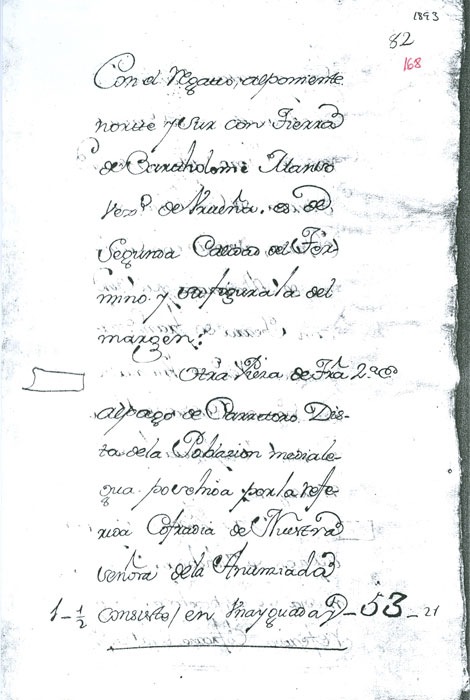 1893
82
168
Con el Regatto, al poniente
norte y Sur con Tierra
de Bartholome Manso
Vezº de Urueña. es de
Segunda Calidad del Ter
mino y su figura la del
margen:
Otra Pieza de Trâ 2ª
al pago de Carretoro Dis-
ta de la Poblazion media le-
gua posehida por la refe-
rida Cofradia de Nuestra
señora de la Anunziada
1-1/2 consiste en Unayguada y-53-21